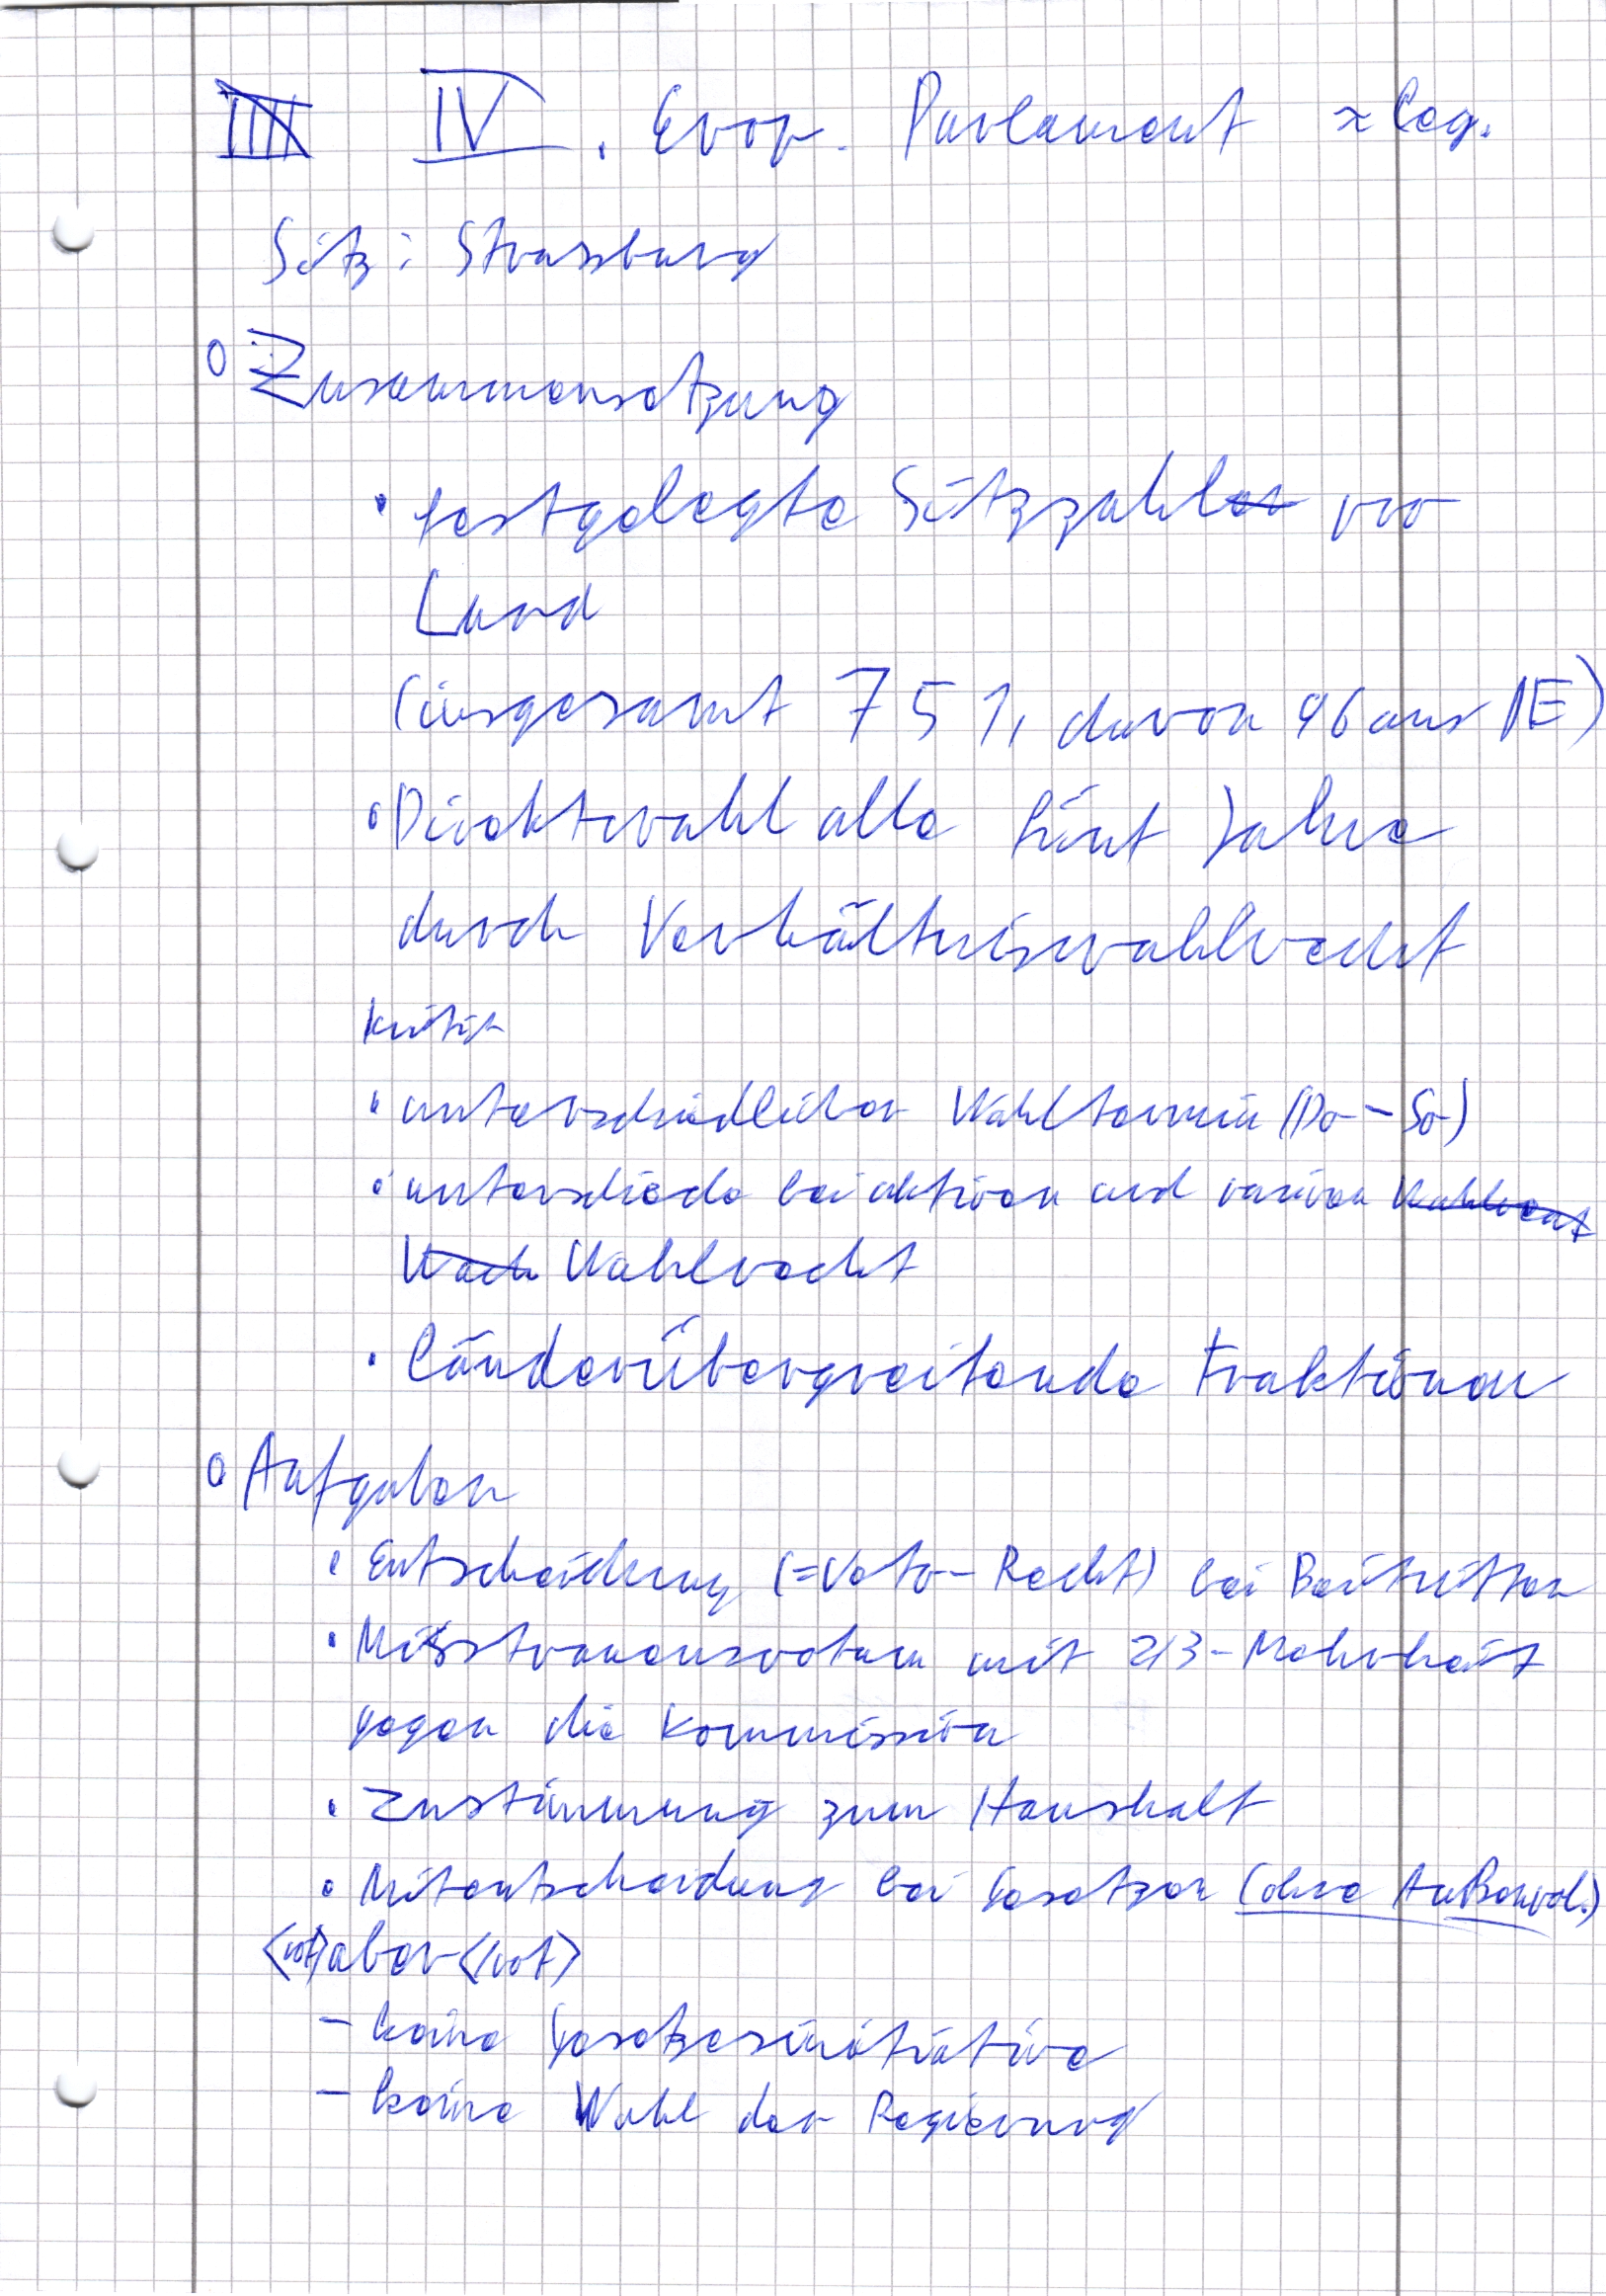 IV. Europ. Parlament ≈ Leg.
Sitz: Strassburg
Zusammensetzung
• festgelegte Sitzzahl pro
Land
(insgesamt 751, davon 96 aus DE)
• Direktwahl alle fünf Jahre
durch Verhältniswahlrecht
Kritik
• unterschiedlicher Wahltermin (Do-So)
• unterschiede bei aktiven und passiven Wahlrecht
Wach Wahlrecht
• länderübergreifende Fraktionen
Aufgaben
• Entscheidung (=Veto-Recht) bei Beitritten
• Misstrauensvotum mit 2/3-Mehrheit
gegen die Kommission
• Zustimmung zum Haushalt
• Mitentscheidung bei Gesetzen (ohne Außenpol.)
<rot>aber</rot>
- keine Gesetzesinitiative
- keine Wahl der Regierung